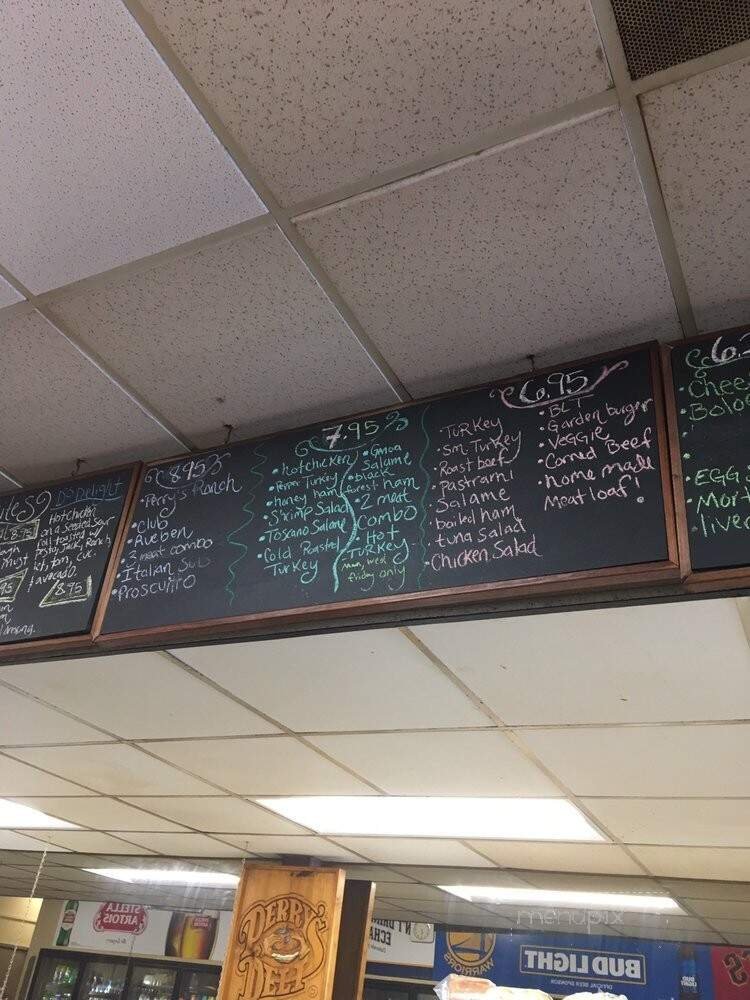 D's Delight
Hot chicken
on a Seeded Sour
roll toasted w/
pesto, Jack, Ranch
let, tom, cuc.
+ avocado.
8.95
8.95
Perry's Ranch
• Club
• Rueben
• 2 meat combo
• Italian Sub
• Proscuitto
7.95
• hot chicken
• Perm Turkey
• honey ham
• Shrimp Salad
• Toscano Salame
• Cold Roasted
Turkey
• Genoa
Salame
• black
forest ham
• 2 meat
Combo
• Hot
Turkey
Mon, Wed
friday only
6.95
• Turkey
• Sm Turkey
• Roast beef
• pastrami
• Salame
• boiled ham
• tuna Salad
• Chicken Salad
• BLT
• Garden burger
• Veggie
• Corned Beef
• home made
Meatloaf!
• EGG
STELLA
ARTOIS
DERBY
DELI
WARRIORS
BUD LIGHT
menupix